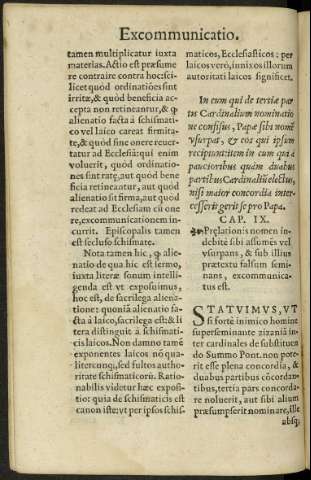 Excommunicatio.
tamen multiplicatur iuxta
materias. Actio est præsume
re contraire contra hoc: sci-
licet quòd ordinatiões sint
irritæ, & quòd beneficia ac-
cepta non retineantur, &
alienatio facta à schismati-
co vel laico careat firmita-
te, & quòd sine onere reuer-
tatur ad Ecclesiã: qui enim
voluerit, quòd ordinatio-
nes sint ratæ, aut quòd bene
ficia retineantur, aut quòd
alienatio sit firma, aut quòd
redeat ad Ecclesiam cũ one
re, excommunicationem in-
currit. Episcopalis tamen
est secluso schismate.
Nota tamen hic, alie-
natio de qua hic est sermo,
iuxta literæ sonum intelli-
genda est vt exposuimus,
hoc est, de sacrilega aliena-
tione: quoniã alienatio fa-
cta à laico, sacrilega est: & li
tera distinguit à schismati-
cis laicos. Non damno tamẽ
exponentes laicos nõ qua-
litercunq;, sed fultos autho-
ritate schismaticorũ. Ratio-
nabilis videtur hæc exposi-
tio: quia de schismaticis est
canon iste: vt per ipsos schis-
maticos, Ecclesiasticos: per
laicos verò, innixos illorum
autoritati laicos significet.
In eum qui de tertiæ par
tis Cardinalium nominatio
ne confisus, Papæ sibi nomẽ
vsurpat, & eos qui ipsum
recipiunt: item in eum qui à
paucioribus quàm duabus
partibus Cardinaliũ electus,
nisi maior concordia inter-
cesserit gerit se pro Papa.
CAP. IX.
Prælationis nomen in-
debitè sibi assumẽs vel
vsurpans, & sub illius
prætextu falsum semi-
nans, excommunica-
tus est.
STATVIMVS, VT
si fortè inimico homine
superseminante zizania in-
ter cardinales de substituen
do Summo Pont. non pote-
rit esse plena concordia, &
duabus partibus cõcordan-
tibus, tertia pars concorda-
re noluerit, aut sibi alium
præsumpserit nominare, ille
absq;